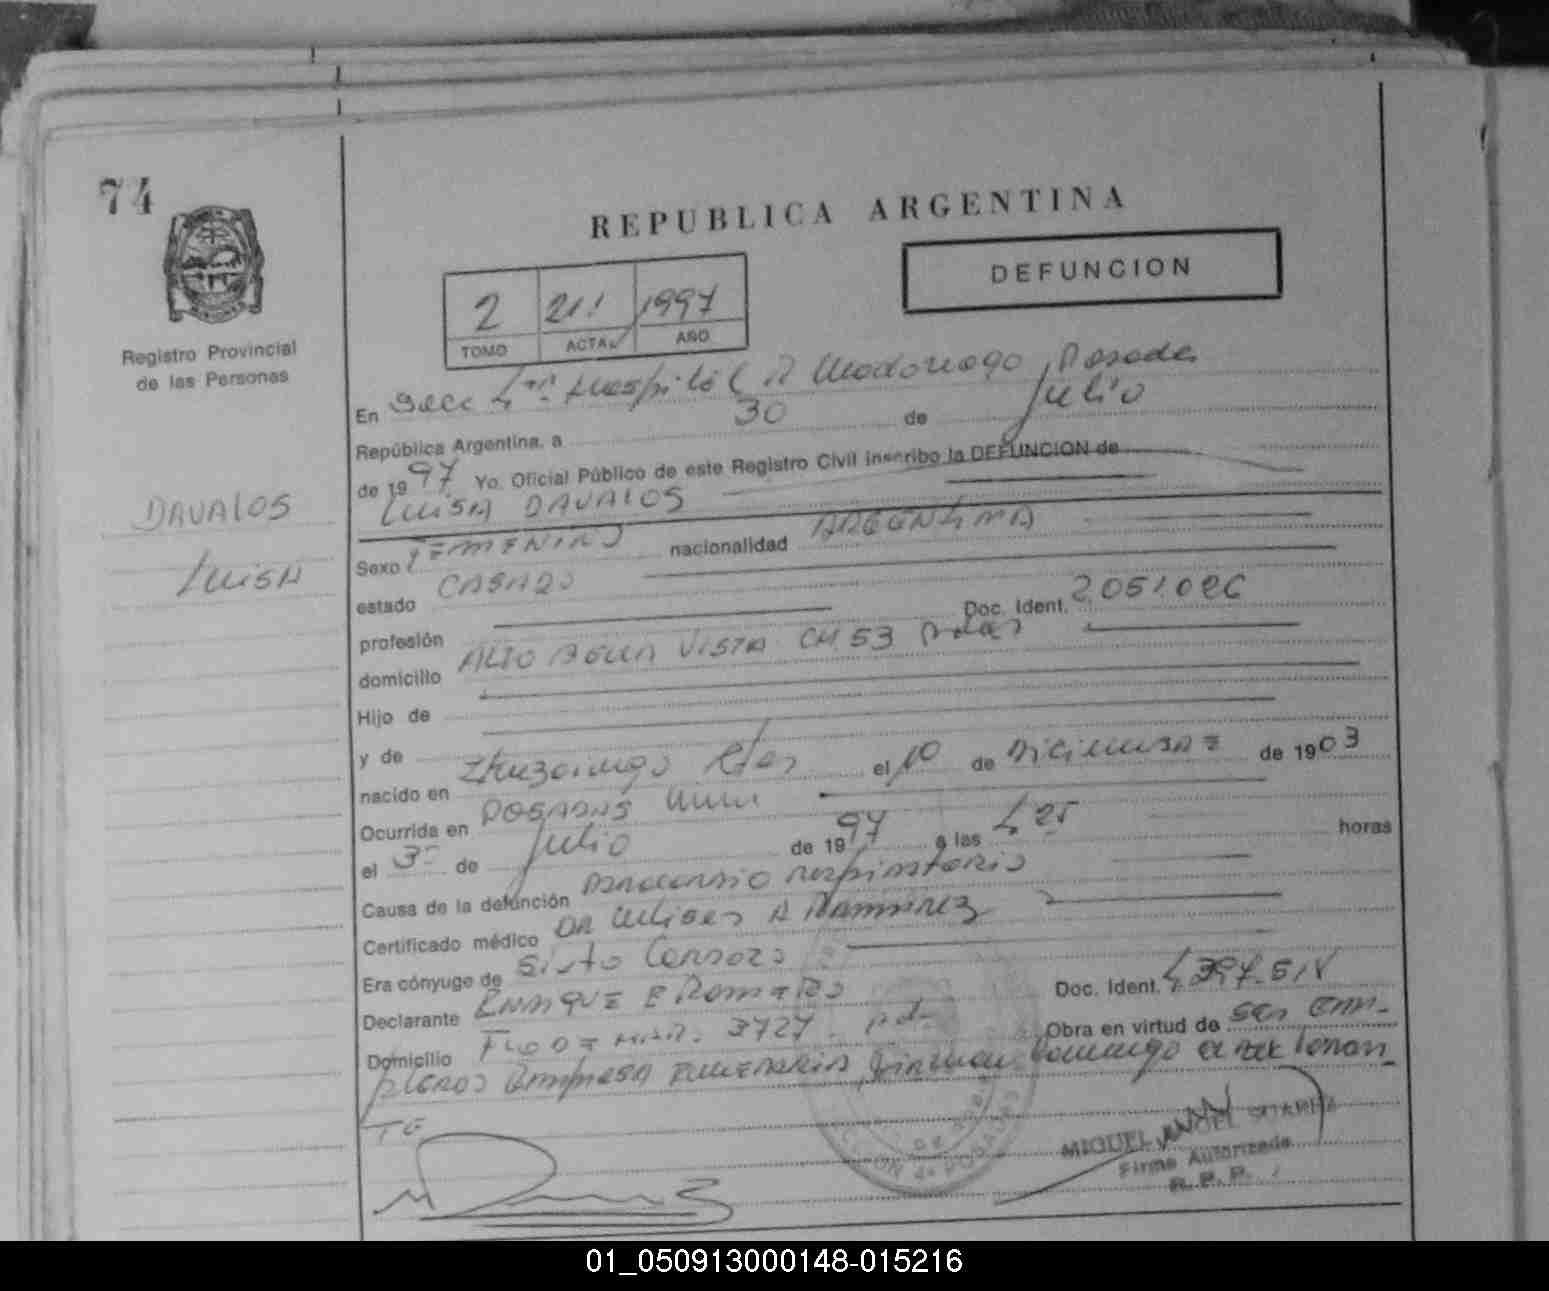 74
REPUBLICA ARGENTINA
DEFUNCION
2 211 1997
TOMO ACTA AÑO
Registro Provincial
de las Personas
En Secc 4ta Hospital R Madariaga, Posadas
República Argentina, a 30 de Julio
de 1997 Yo, Oficial Público de este Registro Civil inscribo la DEFUNCION de
LUISA DAVALOS
DAVALOS
LUISA
Sexo FEMENINO nacionalidad ARGENTINA
estado CASADO
profesión Doc. Ident. 2051026
domicilio ALTO AGUA VISTA CH 53 Pdas
Hijo de
y de
nacido en Ituzaingo Ctes el 10 de DICIEMBRE de 1903
Ocurrida en POSADAS
el 30 de Julio de 1997 a las 4 25 horas
Causa de la defunción Paro cardio respiratorio
Certificado médico DR Ulises A RAMIREZ
Era cónyuge de Sixto
Declarante ENRIQUE E ROMERO Doc. Ident.
Domicilio 3727 Pdas Obra en virtud de ser em-
pleado EMPRESA FUNERARIA
TE
MIGUEL ANGEL
Firma Autorizada
R. P. P.
DE POSADAS
01_050913000148-015216